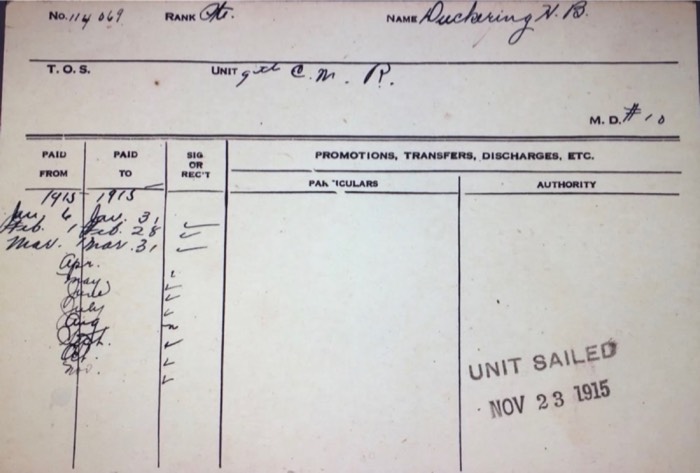 No. 114069 RANK Pte. NAME Duckering H. B.
T. O. S. UNIT 9th C. M. R.
M. D. # 10
PAID FROM PAID TO SIG OR REC'T PROMOTIONS, TRANSFERS, DISCHARGES, ETC.
PARTICULARS AUTHORITY
1915 1915
Jan. 6 Jan. 31
Feb. 1 Feb. 28
Mar. Mar. 31
Apr.
May
June
July
Aug
Sept.
Oct.
Nov.
UNIT SAILED
NOV 23 1915